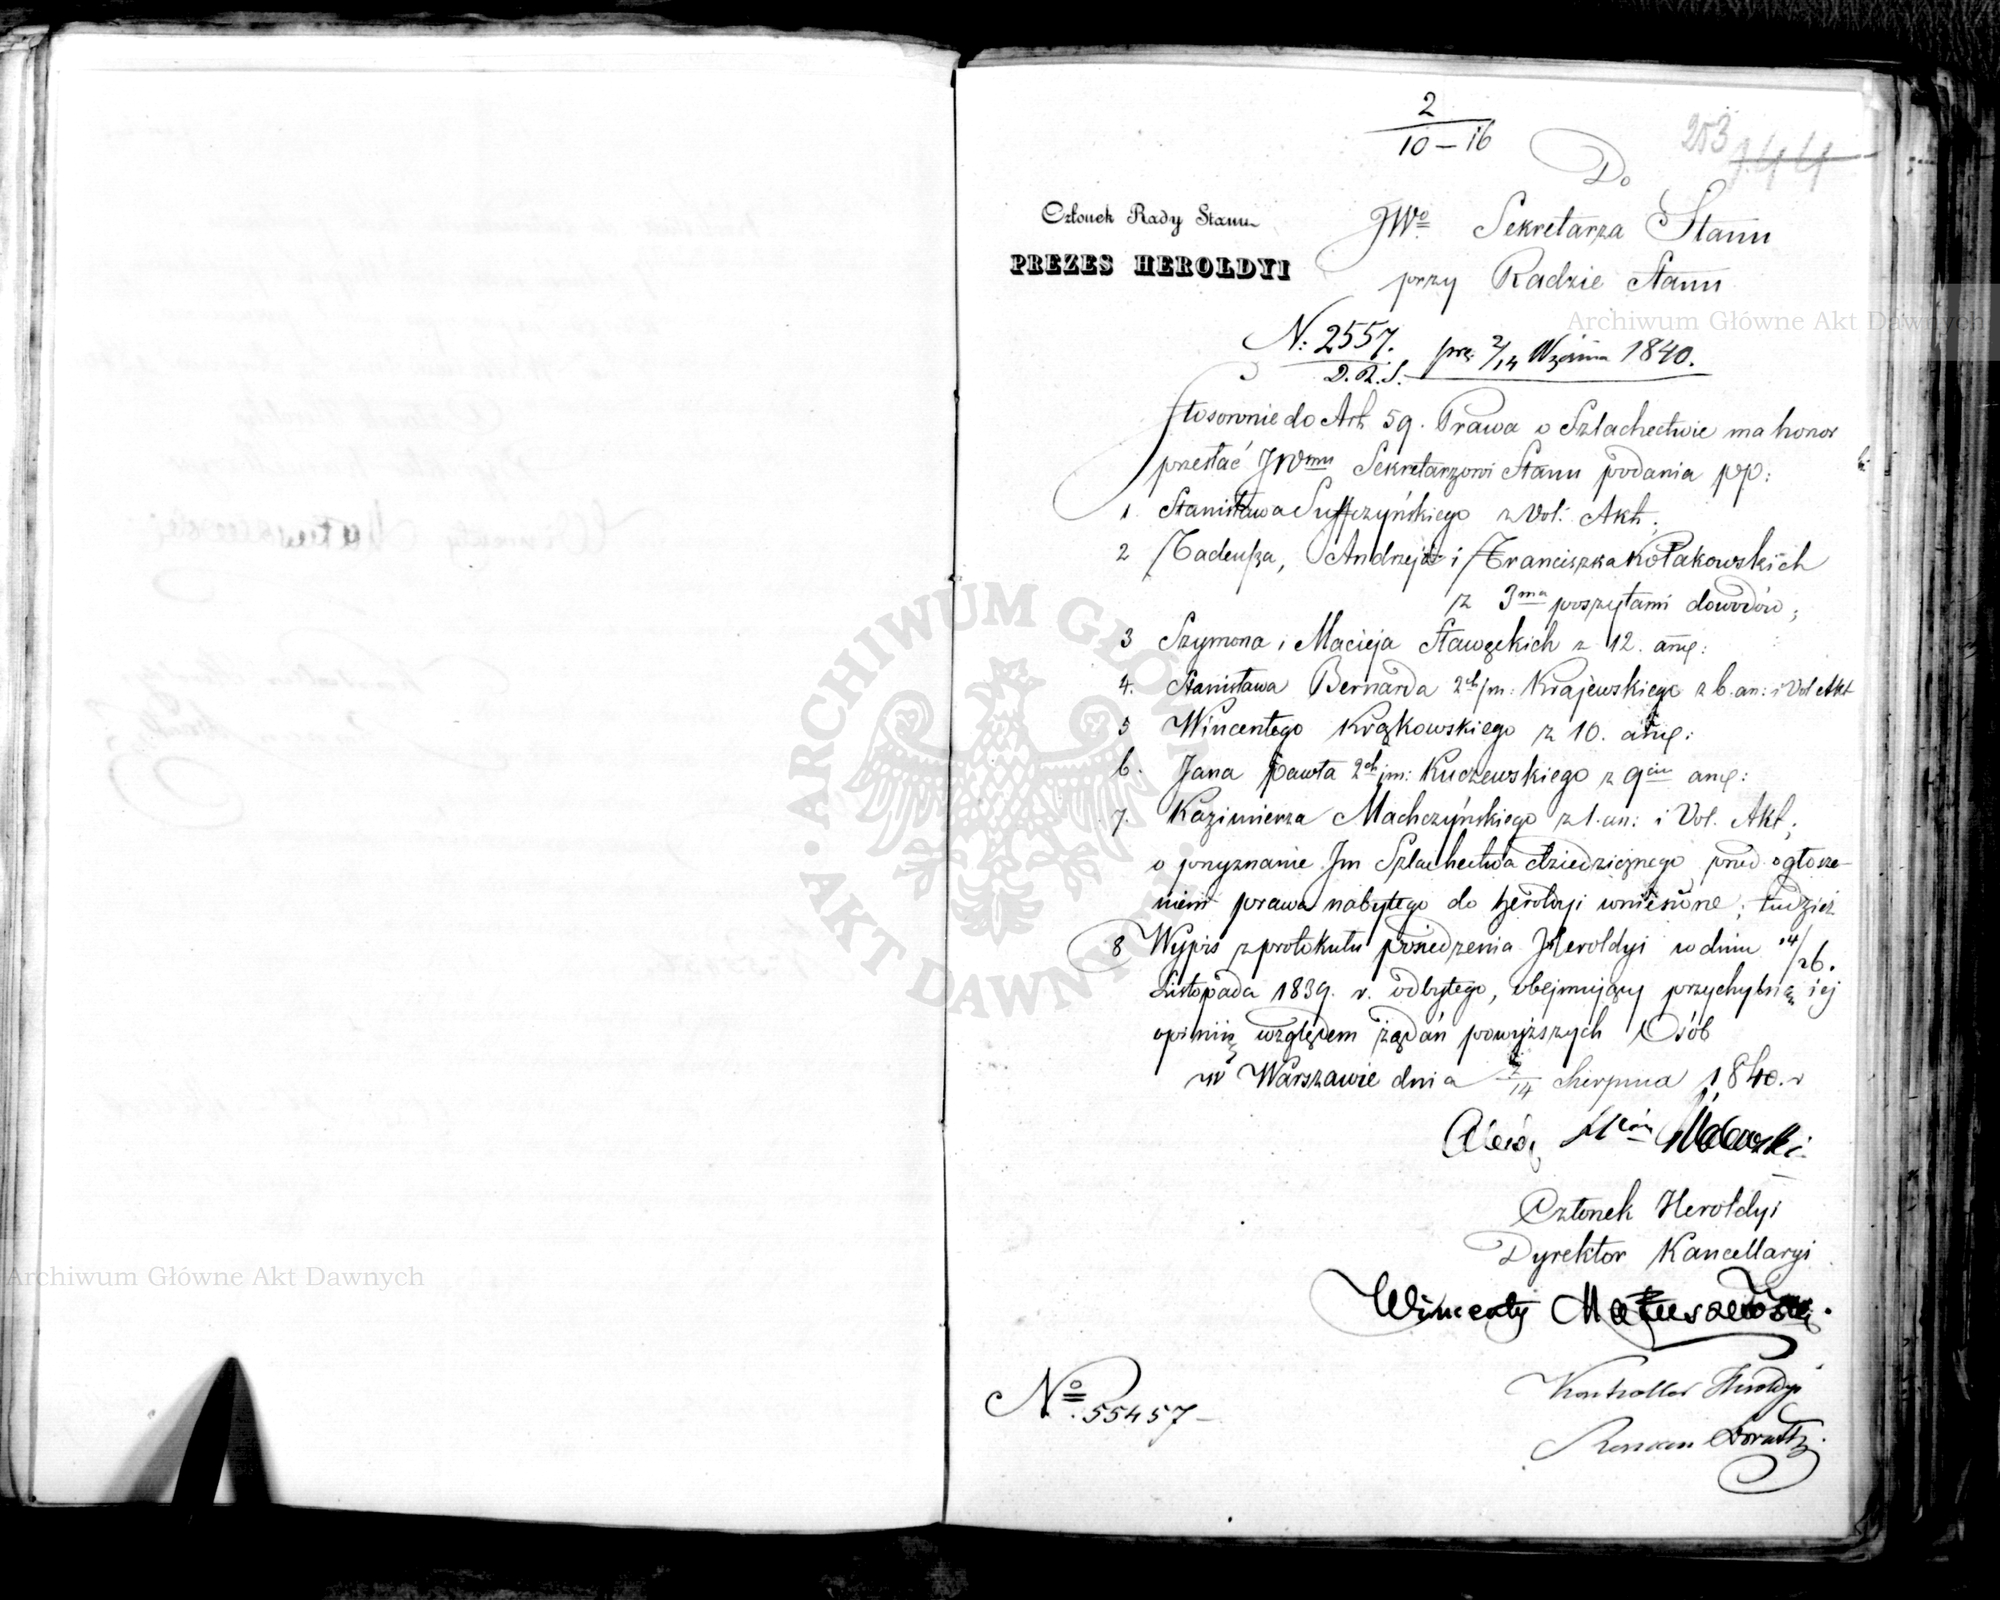 2
10 – 16
253
144
Do
Członek Rady Stanu
JWo Sekretarza Stanu
PREZES HEROLDYI
przy Radzie Stanu
Archiwum Główne Akt Dawnych
N: 2557. 2/14 Września 1840.
D. R. S.
Stosownie do Art 59. Prawa o Szlachectwie ma honor
przesłać JWmu Sekretarzowi Stanu podania pp:
1 Stanisława Suffczyńskiego z Vol: Akt.
2 Tadeusza, Andrzeja i Franciszka Kołakowskich
z 3ma poszytami dowodów;
3 Szymona i Macieja Sławęckich z 12. anę:
4. Stanisława Bernarda 2ch im: Krajewskiego z 6. an: i Vol Akt
5 Wincentego Krąkowskiego z 10. anę:
6. Jana Pawła 2ch im: Kuczewskiego z 9ciu anę:
7. Kazimierza Machczyńskiego z 1. an: i Vol. Akt;
o przyznanie Im Szlachectwa dziedzicznego przed ogłosze-
niem prawa nabytego do heroldyi wniesione; tudzież
8 Wypis z protokułu posiedzenia Heroldyi w dniu 14/26.
Listopada 1839. r. odbytego, obejmujący przychylną iej
opiniię względem żądań powyższych Osób
w Warszawie dnia 2/14 Sierpnia 1840. r
Członek Heroldyi
Dyrektor Kancellaryi
Archiwum Główne Akt Dawnych
Wincenty Matuszewski.
Kontroller Heroldyi
No. 55457 –
Roman
ARCHIWUM GŁÓWNE AKT DAWNYCH